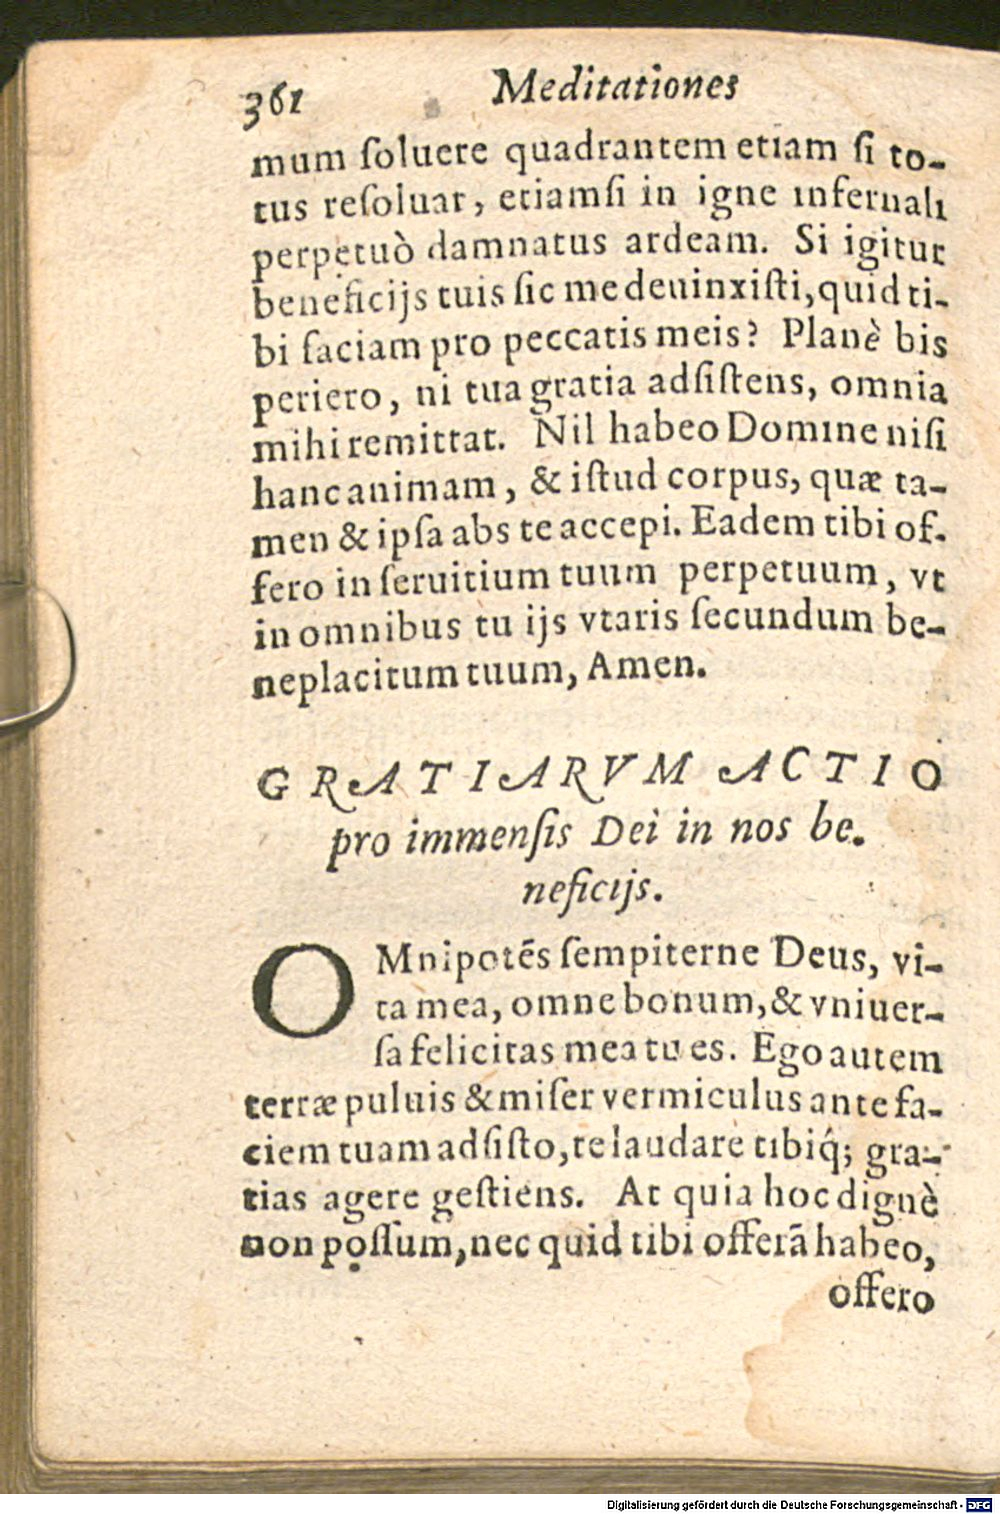 361 Meditationes
mum ſoluere quadrantem etiam ſi to-
tus reſoluar, etiamſi in igne infernali
perpetuò damnatus ardeam. Si igitur
beneficijs tuis ſic me deuinxiſti, quid ti-
bi faciam pro peccatis meis? Planè bis
periero, ni tua gratia adſiſtens, omnia
mihi remittat. Nil habeo Domine niſi
hanc animam, & iſtud corpus, quæ ta-
men & ipſa abs te accepi. Eadem tibi of-
fero in ſeruitium tuum perpetuum, vt
in omnibus tu ijs vtaris ſecundum be-
neplacitum tuum, Amen.
GRATIARVM ACTIO
pro immenſis Dei in nos be-
neficijs.
OMnipotẽs ſempiterne Deus, vi-
ta mea, omne bonum, & vniuer-
ſa felicitas mea tu es. Ego autem
terræ puluis & miſer vermiculus ante fa-
ciem tuam adſiſto, te laudare tibiq́; gra-
tias agere geſtiens. At quia hoc dignè
non poſſum, nec quid tibi offerã habeo,
offero
Digitalisierung gefördert durch die Deutsche Forschungsgemeinschaft - DFG